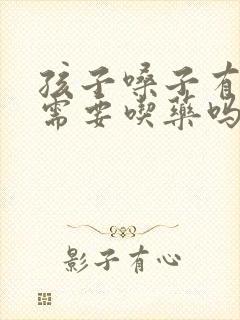 孩子嗓子有
需要喫藥吗
影子有心